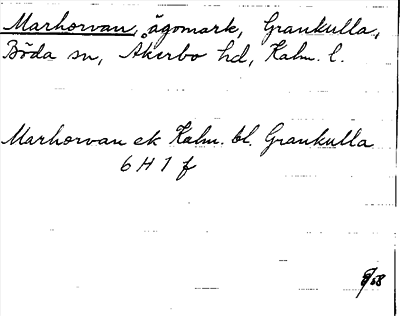 Marhorvan, ägomark, Grankulla,
Böda sn, Åkerbo hd, Kalm. l.
Marhorvan ek Kalm. bl. Grankulla
6 H 1 f